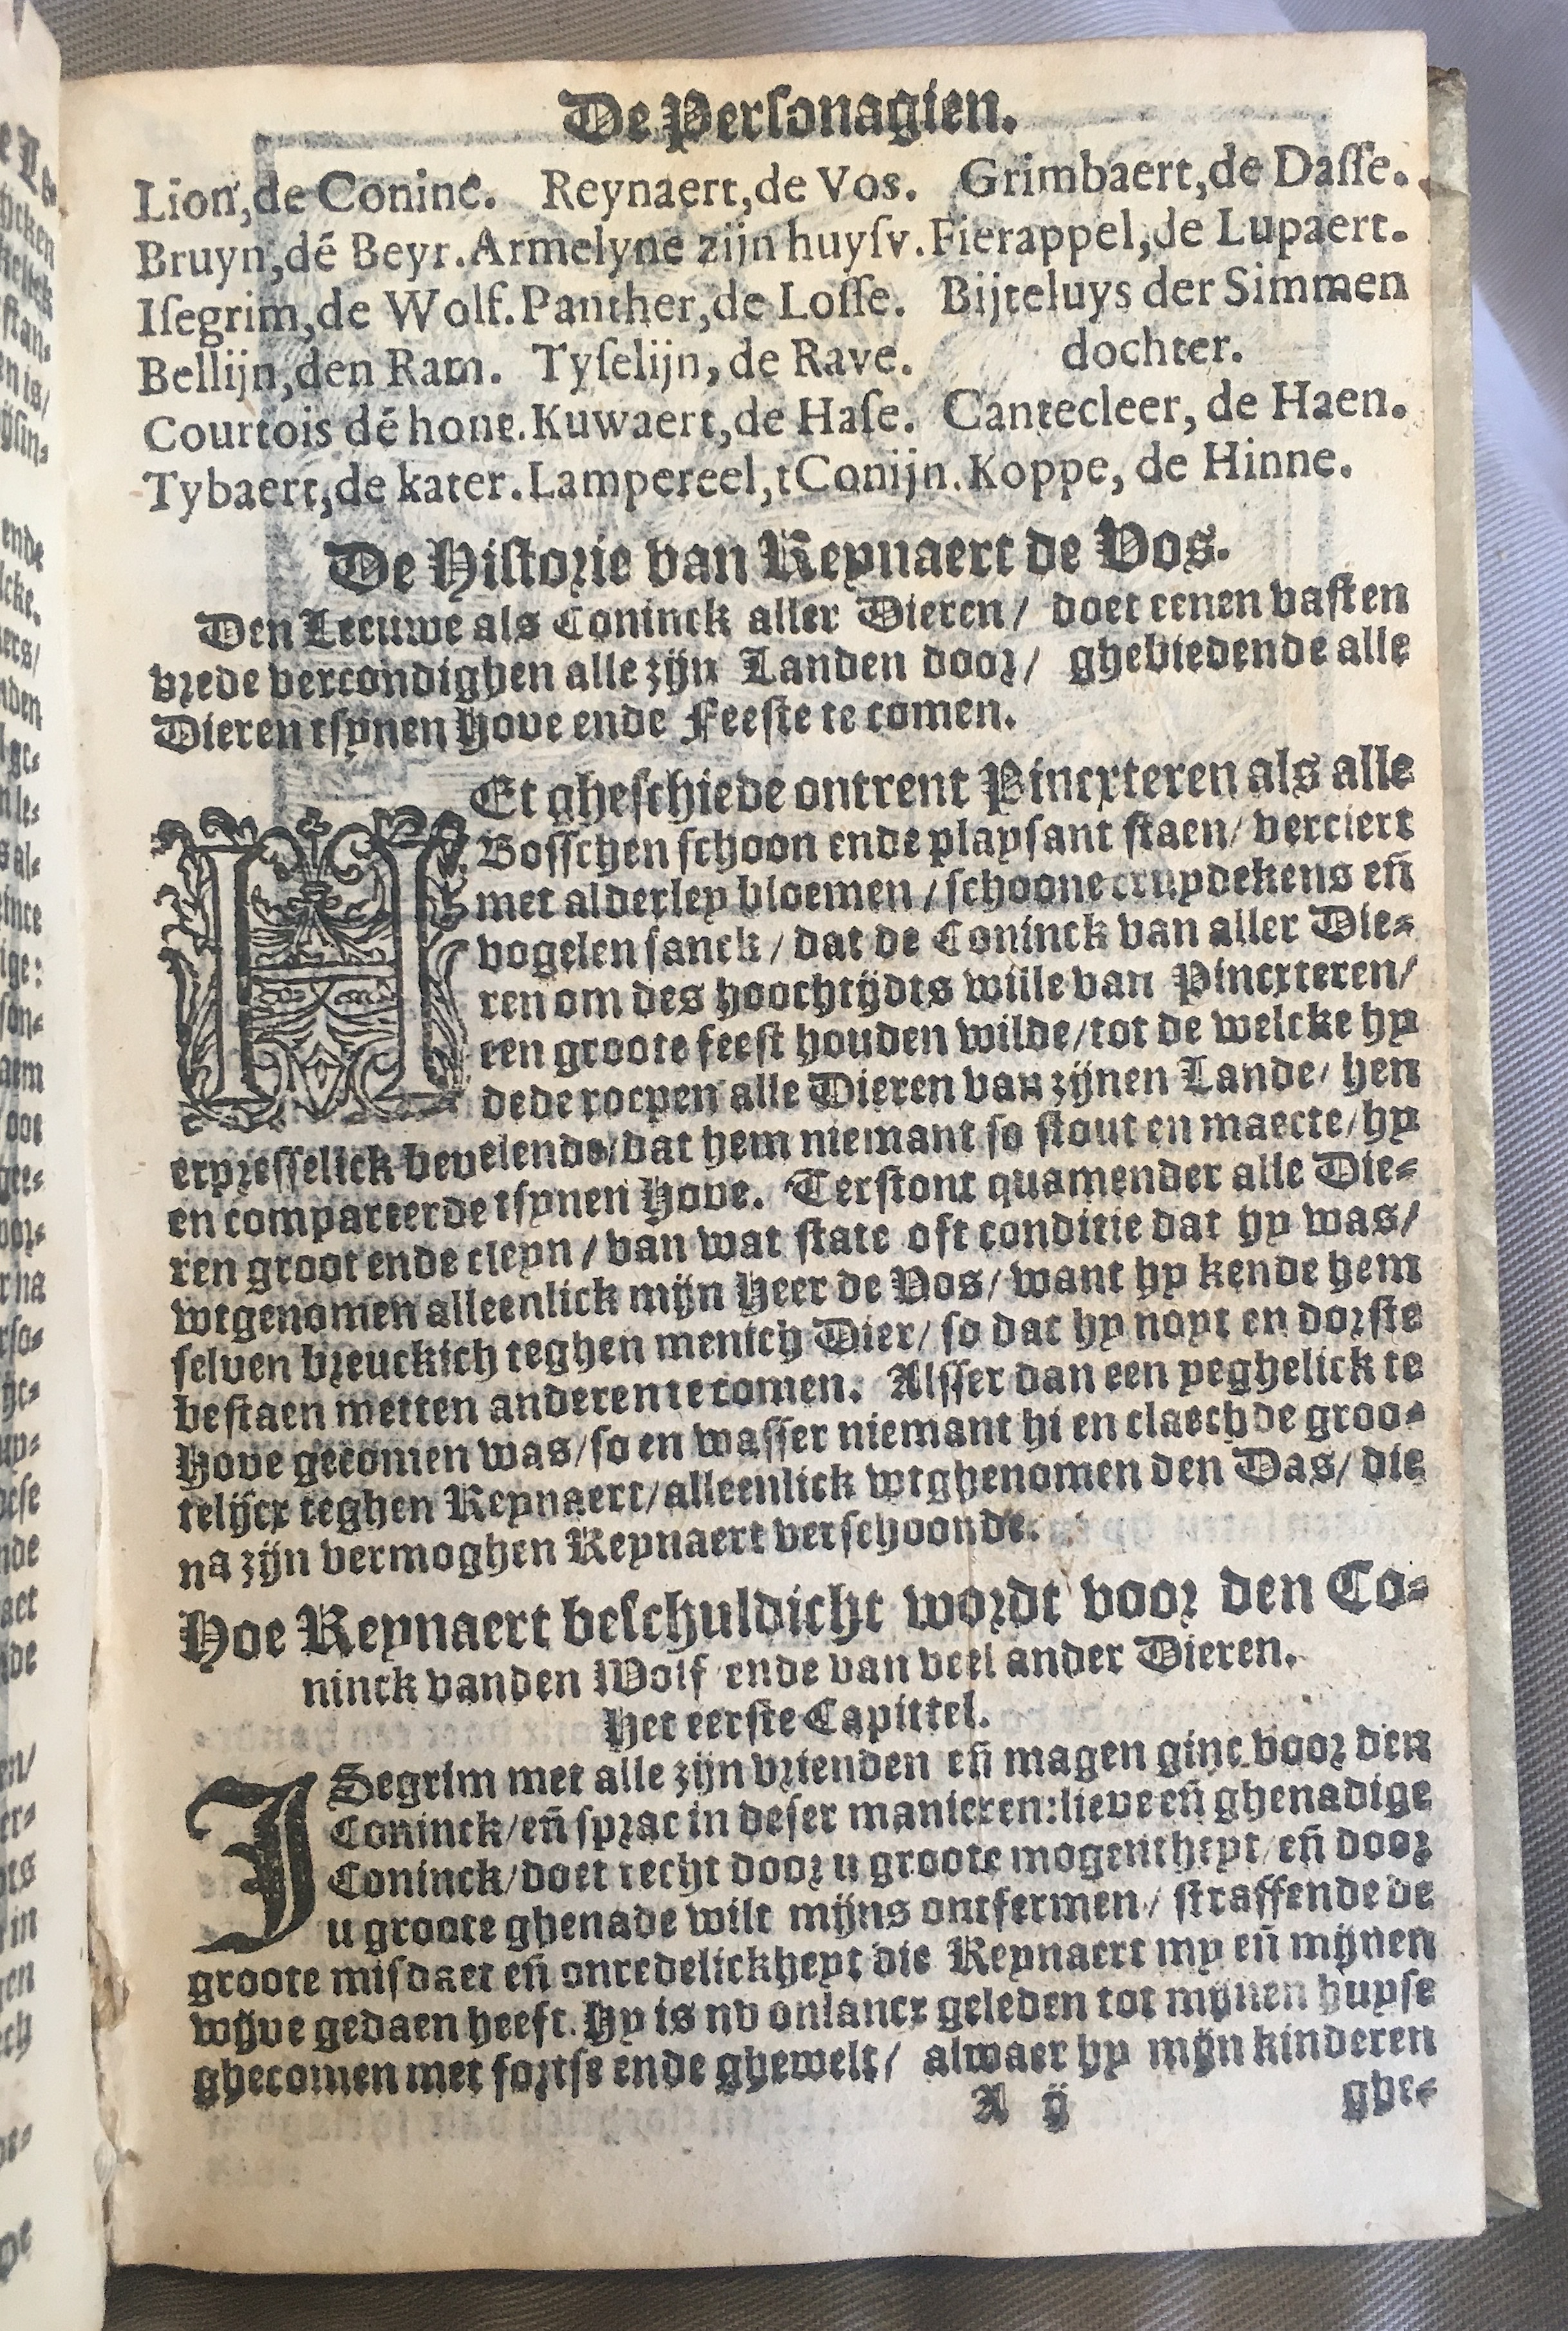 De Personagien.
Lion, de Coninc. Reynaert, de Vos. Grimbaert, de Dasse.
Bruyn, dē Beyr. Armelyne zijn huysv. Fierappel, de Lupaert.
Isegrim, de Wolf. Panther, de Losse. Bijteluys der Simmen
Bellijn, den Ram. Tyselijn, de Rave. dochter.
Courtois dē hont. Kuwaert, de Hase. Cantecleer, de Haen.
Tybaert, de kater. Lampereel, tConijn. Koppe, de Hinne.
De Historie van Reynaert de Vos.
Den Leeuwe als Coninck aller Dieren / doet eenen vasten
vrede vercondighen alle zijn Landen door / ghebiedende alle
Dieren tsynen Hove ende Feeste te comen.
HEt gheschiede ontrent Pincxteren als alle
Bosschen schoon ende playsant staen / verciert
met alderley bloemen / schoone cruydekens eñ
vogelen sanck / dat de Coninck van aller Die-
ren om des hoochtijdts wille van Pincxteren /
een groote feest houden wilde / tot de welcke hy
dede roepen alle Dieren van zijnen Lande / hen
expresselick bevelende / dat hem niemant so stout en maecte / hy
en compareerde tsynen Hove. Terstont quamender alle Die-
ren groot ende cleyn / van wat state oft conditie dat hy was /
wtgenomen alleenlick mijn Heer de Vos / want hy kende hem
selven breuckich teghen menich Dier / so dat hy noyt en dorste
bestaen metten anderen te comen. Alsser dan een yeghelick te
Hove gecomen was / so en wasser niemant hi en claechde groo-
telijcx teghen Reynaert / alleenlick wtghenomen den Das / die
na zijn vermoghen Reynaert verschoonde.
Hoe Reynaert beschuldicht wordt voor den Co-
ninck vanden Wolf ende van veel ander Dieren.
Het eerste Capittel.
ISegrim met alle zijn vrienden eñ magen ginc voor den
Coninck / eñ sprac in deser manieren: lieve eñ ghenadige
Coninck / doet recht door u groote mogentheyt / eñ door
u groote ghenade wilt mijns ontfermen / straffende de
groote misdaet eñ onredelickheyt die Reynaert my eñ mijnen
wijve gedaen heeft. Hy is nv onlancx geleden tot mijnen huyse
ghecomen met fortse ende ghewelt / alwaer hy mijn kinderen
A ij ghe-